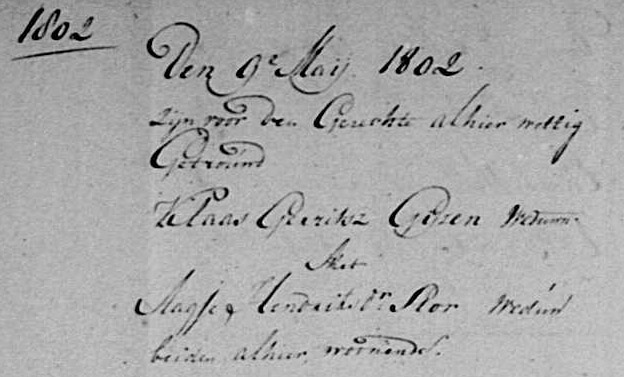 1802
Den 9e Maij. 1802.
zijn voor den Gerechte alhier wettig
Getrouwd
Klaas Gerritsz Weduwr
Met
Hendriks dr Weduw
beiden alhier woonende.